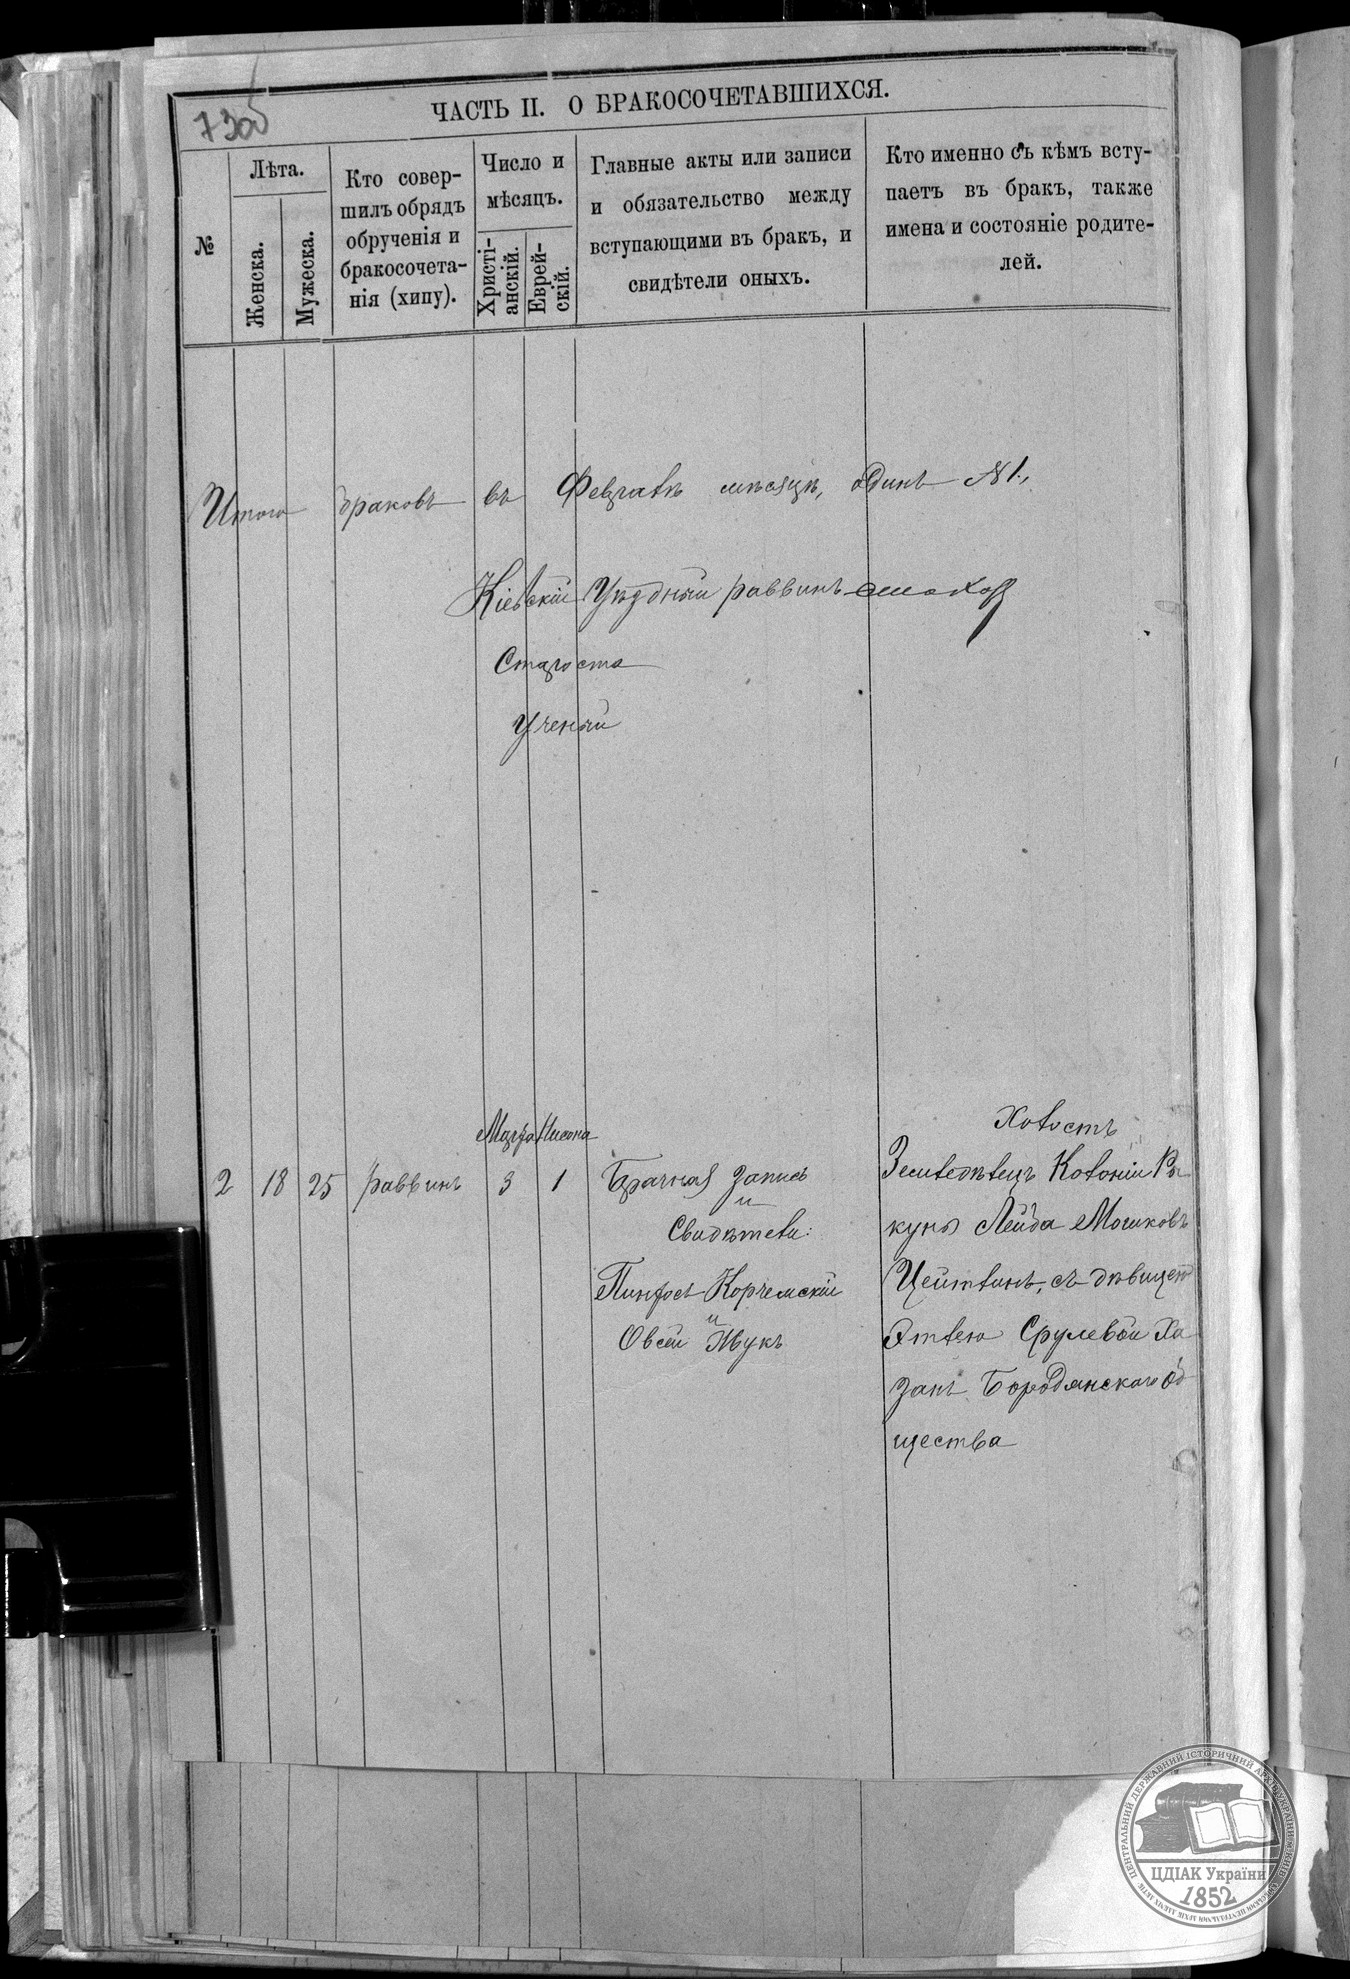 730б
ЧАСТЬ II. О БРАКОСОЧЕТАВШИХСЯ.
№
Лѣта.
Женска.
Мужеска.
Кто совер-
шилъ обрядъ
обрученія и
бракосочета-
нія (хипу).
Число и
мѣсяцъ.
Христі-
анскій.
Еврей-
скій.
Главные акты или записи
и обязательство между
вступающими въ бракъ, и
свидѣтели оныхъ.
Кто именно съ кѣмъ всту-
паетъ въ бракъ, также
имена и состояніе родите-
лей.
Итого браковъ въ Февралѣ мѣсяцѣ, одинъ №1.
Кіевскій Уѣздный раввинъ
Староста
Ученый
Марта Нисона
2 18 25 раввинъ 3 1
Брачная запись
и
Свидѣтели:
Пинхосъ Корчемскій
и
Овсей Жукъ
Холостъ
Земледѣлецъ Колоніи Ра-
куни Лейба Мошковъ
Цейтлинъ, съ дѣвицею
Этлею Срулевой Ха
занъ Бородянскаго Об
щества
ЦЕНТРАЛЬНИЙ ДЕРЖАВНИЙ ІСТОРИЧНИЙ АРХІВ УКРАЇНИ, М. КИЇВ
ЦДІАК України
1852